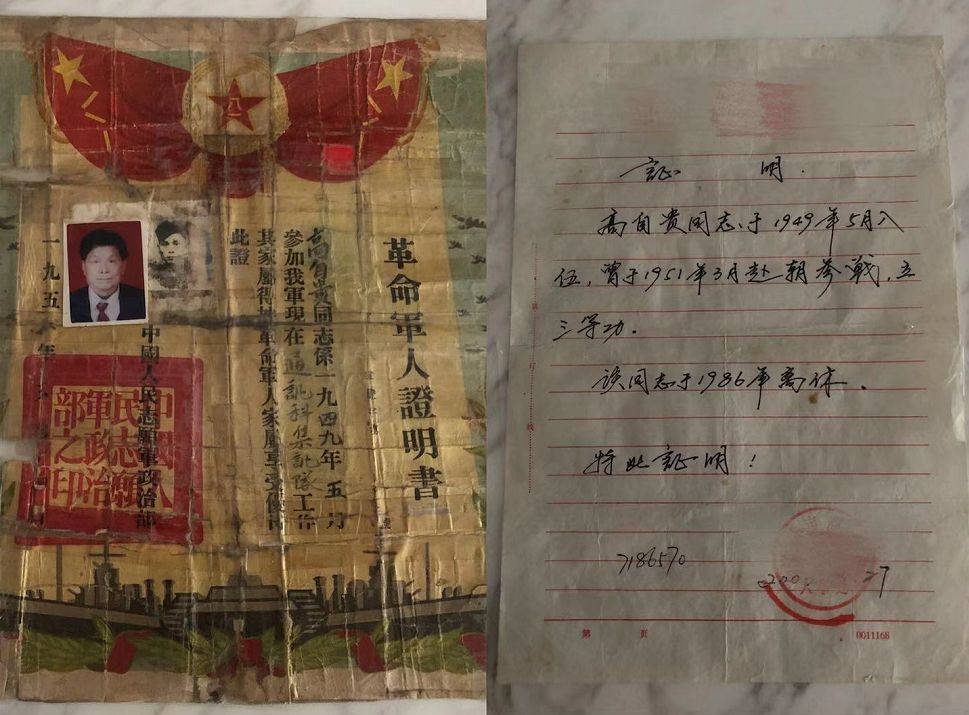 革命軍人證明書
高自貴同志係一九四九年五月
參加我軍現在通訊科集訊隊工作
其家屬得按革命軍人家屬享受優待
此證
中國人民志願軍政治部
一九五 年
中國人
民志願
軍政治
部之印
证 明.
高自贵同志于1949年5月入
伍,曾于1951年3月赴朝参战,立
三等功.
该同志于1986年离休.
特此证明!
7186570
第 页
0011168